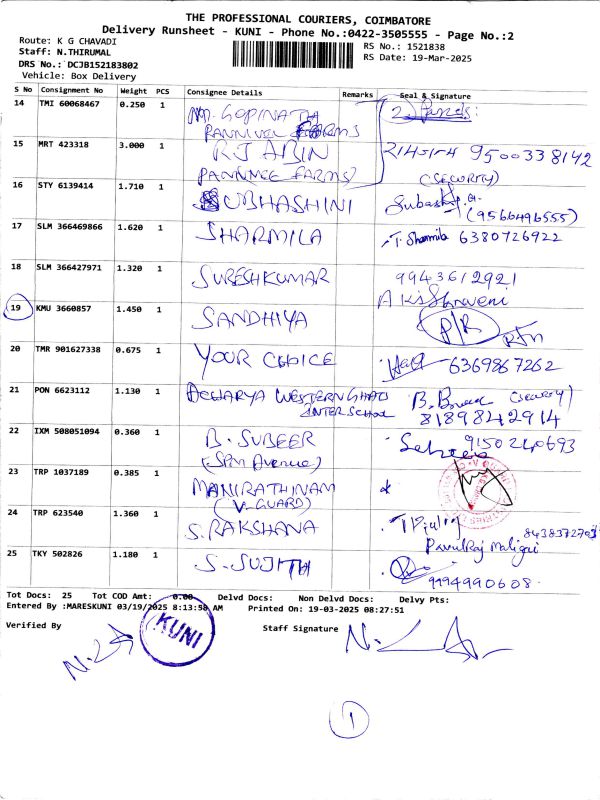 THE PROFESSIONAL COURIERS, COIMBATORE
Delivery Runsheet - KUNI - Phone No.:0422-3505555 - Page No.:2
Route: K G CHAVADI
Staff: N.THIRUMAL
DRS No.: DCJB152183802
Vehicle: Box Delivery
RS No.: 1521838
RS Date: 19-Mar-2025
S No Consignment No Weight PCS Consignee Details Remarks Seal & Signature
14 TMI 60068467 0.250 1 M. GOPINATH
PANNIVEL FARMS
15 MRT 423318 3.000 1 R J ABIN 9500338142
FARMS) (SECURITY)
16 STY 6139414 1.710 1 SUBHASHINI (9566496555)
17 SLM 366469866 1.620 1 SHARMILA T. Sharmila 6380726922
18 SLM 366427971 1.320 1 SURESHKUMAR 9943612921
19 KMU 3660857 1.450 1 SANDHIYA P/R
20 TMR 901627338 0.675 1 YOUR CHOICE 6369867262
21 PON 6623112 1.130 1 ACHARYA WESTERN GHATS
INTER SCHOOL 8189842914
22 IXM 508051094 0.360 1 B. SUBEER 9150240693
(SPM Avenue)
23 TRP 1037189 0.385 1 MANIRATHINAM
(V-GUARD)
24 TRP 623540 1.360 1 S. RAKSHANA 8438372703
25 TKY 502826 1.180 1 S. SUJITH 9994990608
Tot Docs: 25 Tot COD Amt: 0.00 Delvd Docs: Non Delvd Docs: Delvy Pts:
Entered By :MARESKUNI 03/19/2025 8:13:58 AM Printed On: 19-03-2025 08:27:51
Verified By Staff Signature
KUNI
1